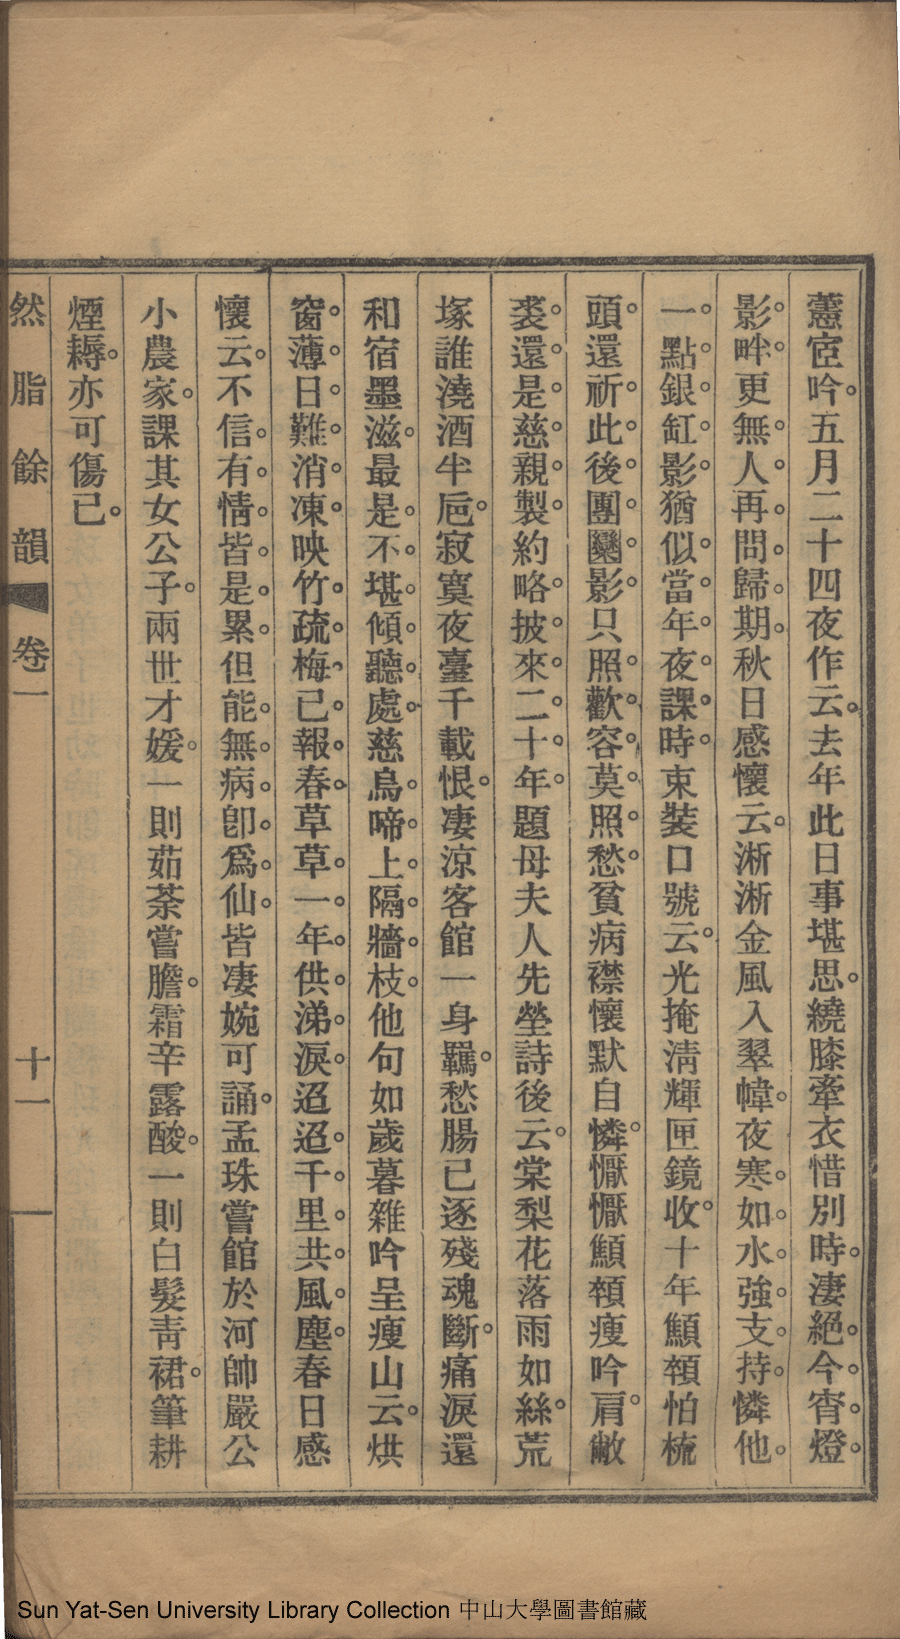 蕙宧吟。五月二十四夜作云。去年此日事堪思。繞膝牽衣惜別時。淒絕。今。宵。燈。
影。畔。更無。人。再。問。歸。期。秋日感懷云。淅淅金風入翠幃。夜寒。如。水。強。支。持。憐他。
一。點。銀。缸。影。猶似。當。年。夜。課。時。束裝口號云。光掩淸輝匣鏡收。十年顦顇怕梳
頭。還祈。此。後團。圞。影。只照。歡。容。莫。照。愁。貧病襟懷默自憐。懨懨顦顇瘦吟肩。敝
裘。還。是。慈。親。製。約略。披。來。二。十。年。題母夫人先塋詩後云。棠梨花落雨如絲。荒
塚誰澆酒半巵。寂寞夜臺千載恨。淒涼客館一身羈。愁腸已逐殘魂斷。痛淚還
和宿墨滋。最是。不。堪。傾。聽。處。慈烏。啼。上。隔。牆。枝。他句如歲暮雜吟呈瘦山云。烘
窗。薄。日。難。消。凍。映竹。疏。梅。已。報。春。草草。一。年。供。涕。淚。迢迢。千。里。共。風。塵。春日感
懷云。不信。有。情。皆。是。累。但能。無。病。卽。爲。仙。皆淒婉可誦。孟珠嘗館於河帥嚴公
小農家。課其女公子。兩世才媛。一則茹荼嘗膽。霜辛露酸。一則白髮靑裙。筆耕
煙耨。亦可傷已。
然脂餘韻 卷一 十一
Sun Yat-Sen University Library Collection 中山大學圖書館藏